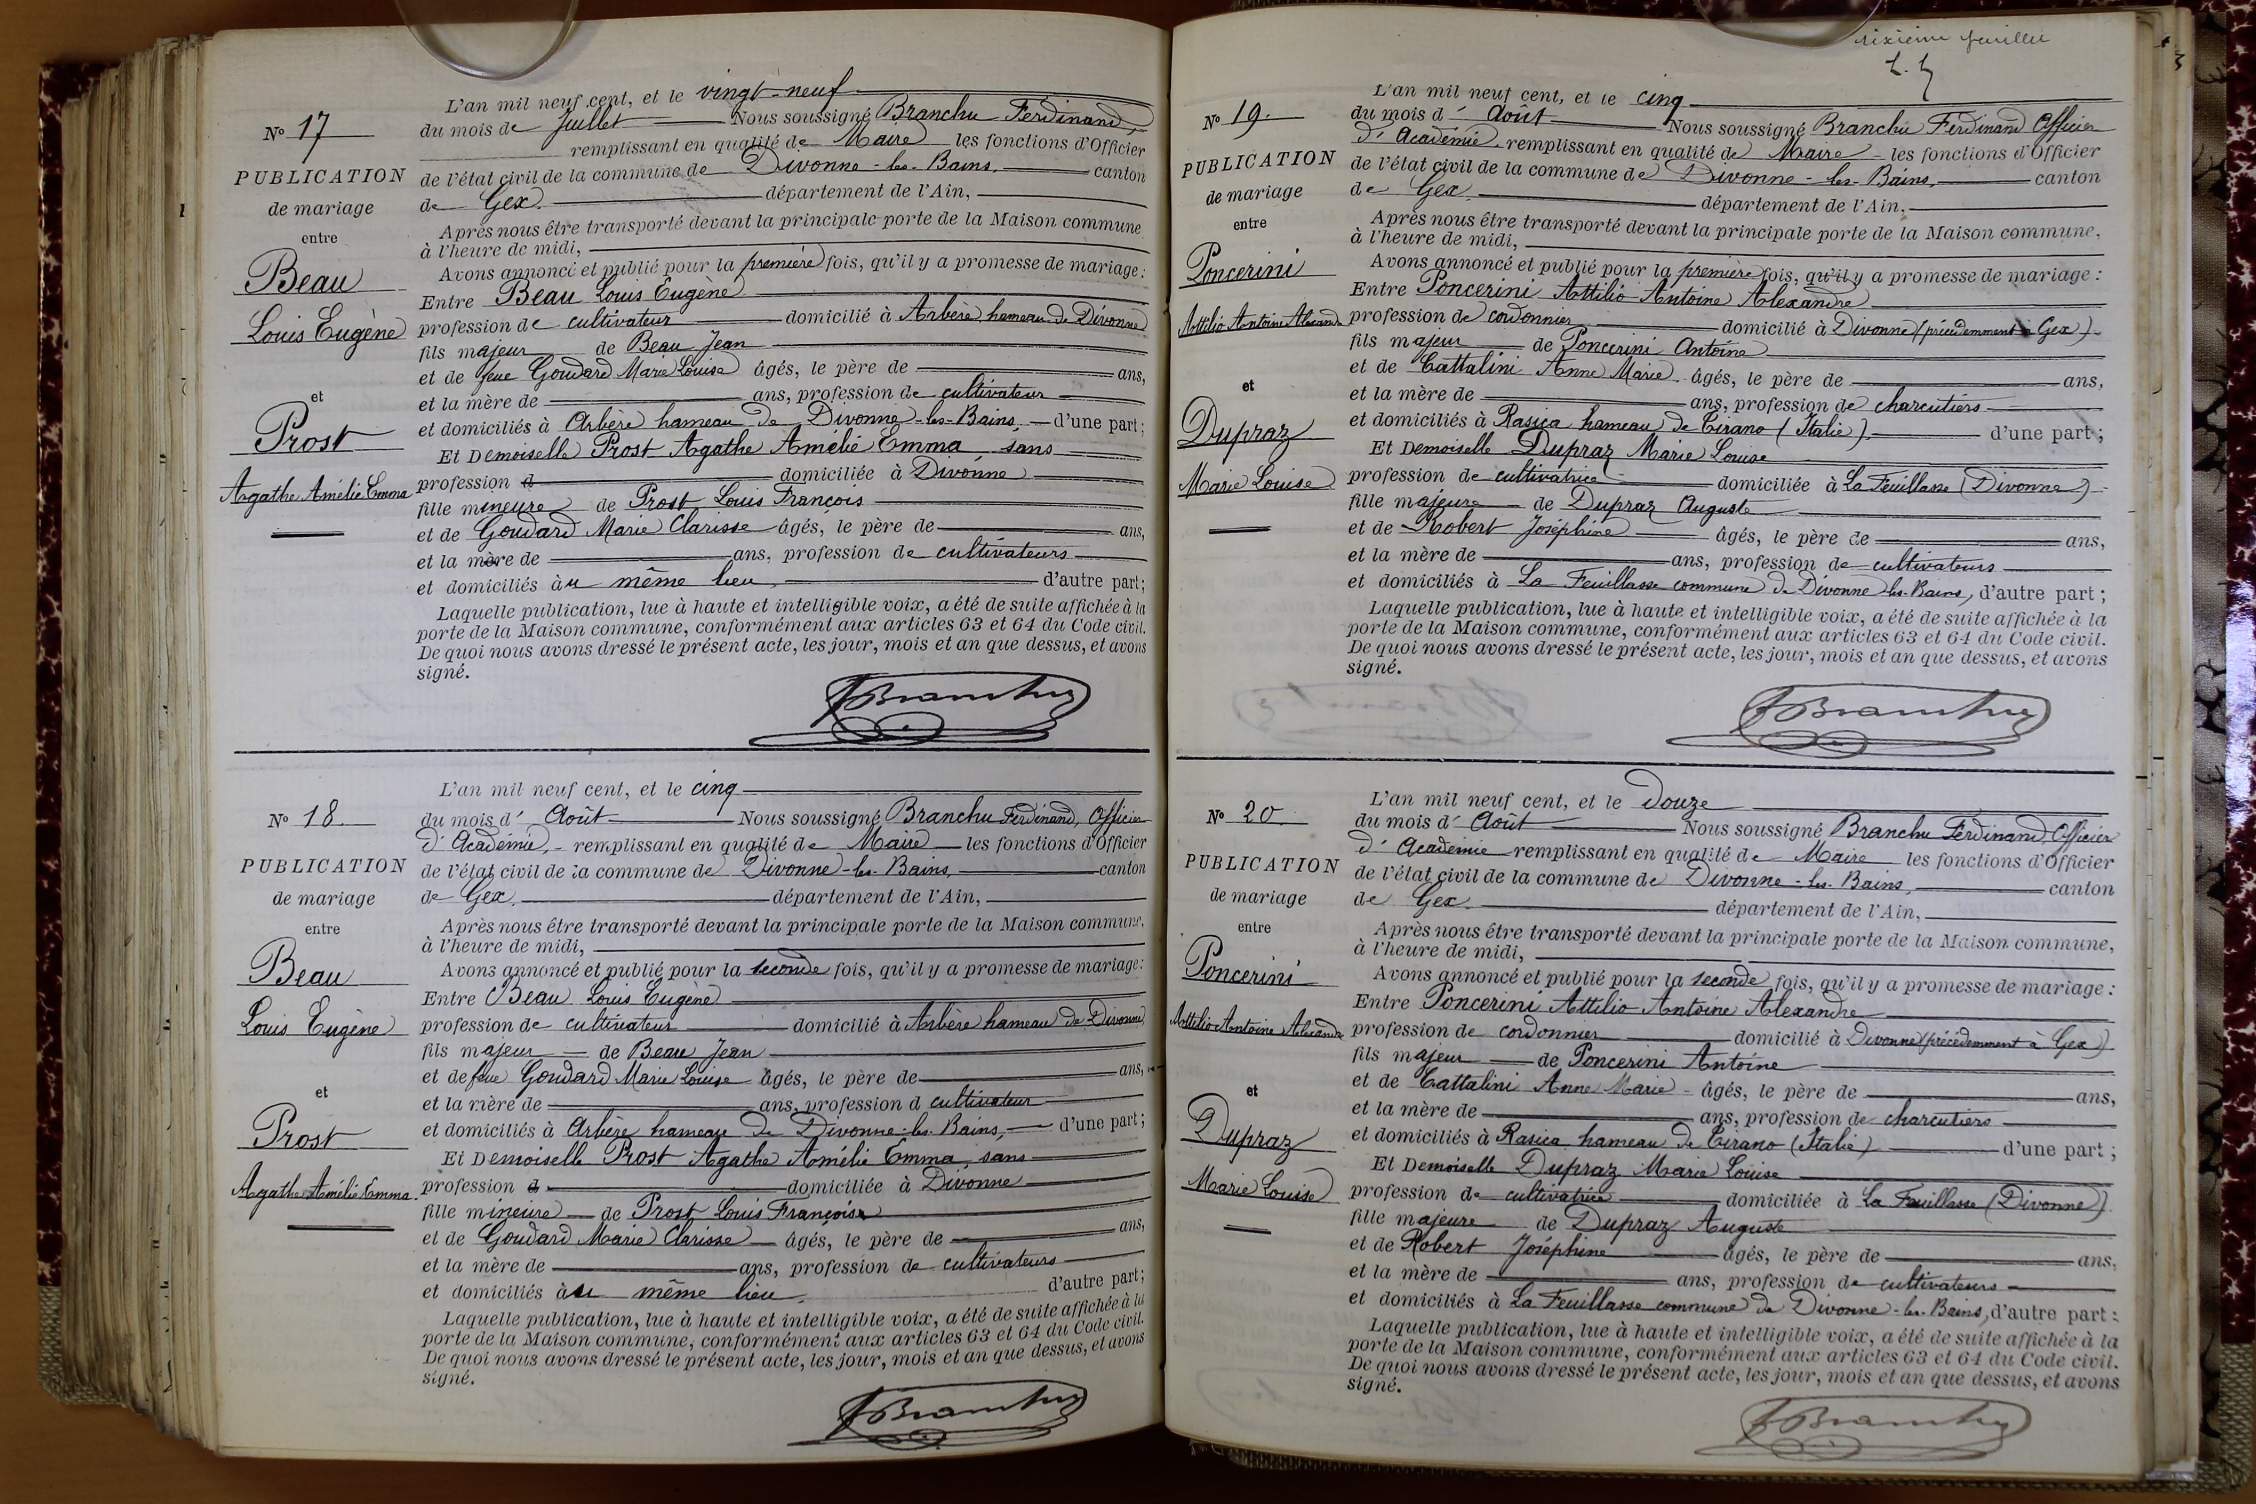 Nº 17
PUBLICATION
de mariage
entre
Beau
Louis Eugène
et
Prost
Agathe Amélie Emma
L'an mil neuf cent, et le vingt-neuf
du mois de Juillet Nous soussigné Branchu Ferdinand,
remplissant en qualité de Maire les fonctions d'Officier
de l'état civil de la commune de Divonne-les-Bains, canton
de Gex. département de l'Ain,
Après nous être transporté devant la principale porte de la Maison commune
à l'heure de midi,
Avons annoncé et publié pour la première fois, qu'il y a promesse de mariage:
Entre Beau Louis Eugène
profession de cultivateur domicilié à Arbère hameau de Divonne
fils majeur de Beau Jean
et de feue Goudard Marie Louise âgés, le père de ans,
et la mère de ans, profession de cultivateur
et domiciliés à Arbère hameau de Divonne-les-Bains, d'une part;
Et Demoiselle Prost Agathe Amélie Emma sans
profession d domiciliée à Divonne
fille mineure de Prost Louis François
et de Goudard Marie Clarisse âgés, le père de ans,
et la mère de ans, profession de cultivateurs
et domiciliés àu même lieu, d'autre part;
Laquelle publication, lue à haute et intelligible voix, a été de suite affichée à la
porte de la Maison commune, conformément aux articles 63 et 64 du Code civil.
De quoi nous avons dressé le présent acte, les jour, mois et an que dessus, et avons
signé.
FBranchu
Nº 18.
PUBLICATION
de mariage
entre
Beau
Louis Eugène
et
Prost
Agathe Amélie Emma.
L'an mil neuf cent, et le cinq
du mois d' Août Nous soussigné Branchu Ferdinand, Officier
d'Académie, remplissant en qualité de Maire les fonctions d'Officier
de l'état civil de la commune de Divonne-les-Bains, canton
de Gex. département de l'Ain,
Après nous être transporté devant la principale porte de la Maison commune.
à l'heure de midi,
Avons annoncé et publié pour la seconde fois, qu'il y a promesse de mariage:
Entre Beau Louis Eugène
profession de cultivateur domicilié à Arbère hameau de Divonne
fils majeur de Beau Jean
et de feue Goudard Marie Louise âgés, le père de ans,
et la mère de ans, profession d cultivateur
et domiciliés à Arbère hameau de Divonne-les-Bains, d'une part;
Et Demoiselle Prost Agathe Amélie Emma, sans
profession d domiciliée à Divonne
fille mineure de Prost Louis François
et de Goudard Marie Clarisse âgés, le père de ans,
et la mère de ans, profession de cultivateurs
et domiciliés àu même lieu, d'autre part;
Laquelle publication, lue à haute et intelligible voix, a été de suite affichée à la
porte de la Maison commune, conformément aux articles 63 et 64 du Code civil.
De quoi nous avons dressé le présent acte, les jour, mois et an que dessus, et avons
signé.
FBranchu
sixième feuillet
Nº 19.
PUBLICATION
de mariage
entre
Poncerini
Attilio Antoine Alexandre
et
Dupraz
Marie Louise
L'an mil neuf cent, et le cinq
du mois d' Août Nous soussigné Branchu Ferdinand Officier
d'Académie, remplissant en qualité de Maire les fonctions d'Officier
de l'état civil de la commune de Divonne-les-Bains, canton
de Gex. département de l'Ain,
Après nous être transporté devant la principale porte de la Maison commune,
à l'heure de midi,
Avons annoncé et publié pour la première fois, qu'il y a promesse de mariage :
Entre Poncerini Attilio Antoine Alexandre
profession de cordonnier domicilié à Divonne (précédemment à Gex)
fils majeur de Poncerini Antoine
et de Cattalini Anne Marie âgés, le père de ans,
et la mère de ans, profession de charcutiers
et domiciliés à Rasica hameau de Tirano (Italie). d'une part ;
Et Demoiselle Dupraz Marie Louise
profession de cultivatrice domiciliée à La Feuillasse (Divonne)
fille majeure de Dupraz Auguste
et de Robert Joséphine âgés, le père de ans,
et la mère de ans, profession de cultivateurs
et domiciliés à La Feuillasse commune de Divonne-les-Bains, d'autre part ;
Laquelle publication, lue à haute et intelligible voix, a été de suite affichée à la
porte de la Maison commune, conformément aux articles 63 et 64 du Code civil.
De quoi nous avons dressé le présent acte, les jour, mois et an que dessus, et avons
signé.
FBranchu
Nº 20
PUBLICATION
de mariage
entre
Poncerini
Attilio Antoine Alexandre
et
Dupraz
Marie Louise
L'an mil neuf cent, et le Douze
du mois d' Août Nous soussigné Branchu Ferdinand, Officier
d'Académie remplissant en qualité de Maire les fonctions d'Officier
de l'état civil de la commune de Divonne-les-Bains, canton
de Gex. département de l'Ain,
Après nous être transporté devant la principale porte de la Maison commune,
à l'heure de midi,
Avons annoncé et publié pour la seconde fois, qu'il y a promesse de mariage :
Entre Poncerini Attilio Antoine Alexandre
profession de cordonnier domicilié à Divonne (précédemment à Gex)
fils majeur de Poncerini Antoine
et de Cattalini Anne Marie âgés, le père de ans,
et la mère de ans, profession de charcutiers
et domiciliés à Rasica hameau de Tirano (Italie) d'une part ;
Et Demoiselle Dupraz Marie Louise
profession de cultivatrice domiciliée à La Feuillasse (Divonne)
fille majeure de Dupraz Auguste
et de Robert Joséphine âgés, le père de ans,
et la mère de ans, profession de cultivateurs
et domiciliés à La Feuillasse commune de Divonne-les-Bains, d'autre part ;
Laquelle publication, lue à haute et intelligible voix, a été de suite affichée à la
porte de la Maison commune, conformément aux articles 63 et 64 du Code civil.
De quoi nous avons dressé le présent acte, les jour, mois et an que dessus, et avons
signé.
FBranchu